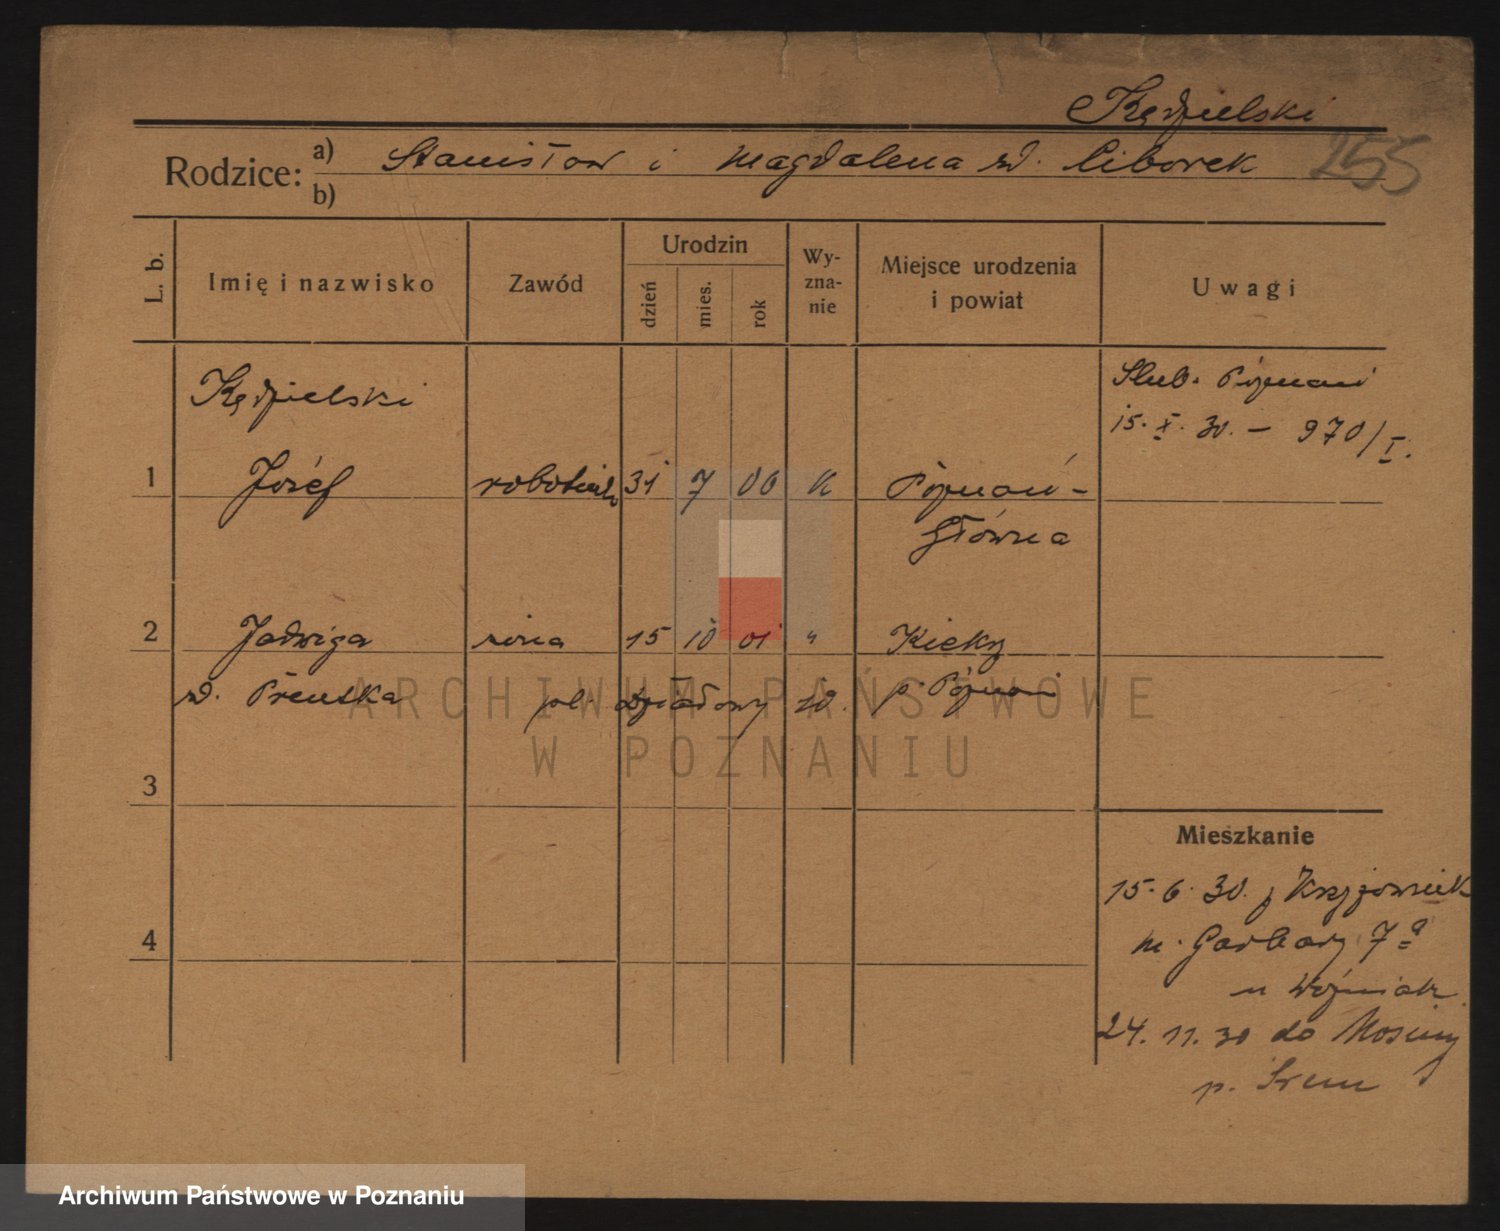 Kędzielski
Rodzice: a) Stanisław i Magdalena zd. Ciborek 255
b)
L. b.
Imię i nazwisko
Zawód
Urodzin
dzień
mies.
rok
Wy-
zna-
nie
Miejsce urodzenia
i powiat
Uwagi
Kędzielski
Ślub. Poznani
15. X. 30. – 970/I.
1 Józef robotnik 31 7 06 K Poznań-
Główna
2 Jadwiga żona 15 10 01 " Kiekrz
zd. pl. Działowy 10. p. Poznani
3
Mieszkanie
15. 6. 30. z Krzyżownik
4
m. Garbary 7a
u Woźniak
24. 11. 30 do Mosiny
p. Śrem
ARCHIWUM PAŃSTWOWE
W POZNANIU
Archiwum Państwowe w Poznaniu